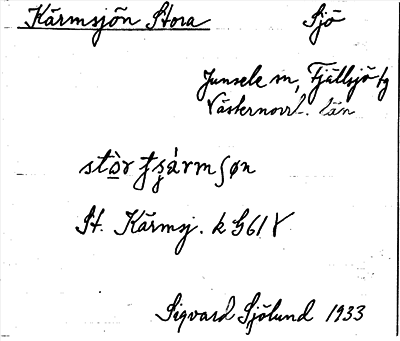 Kärmsjön Stora Sjö
Junsele m, Fjällsjö tg
Västernorrl. län
stòr tʂärmʃøn
St. Kärmsj. k G61 V
Sigvard Sjölund 1933